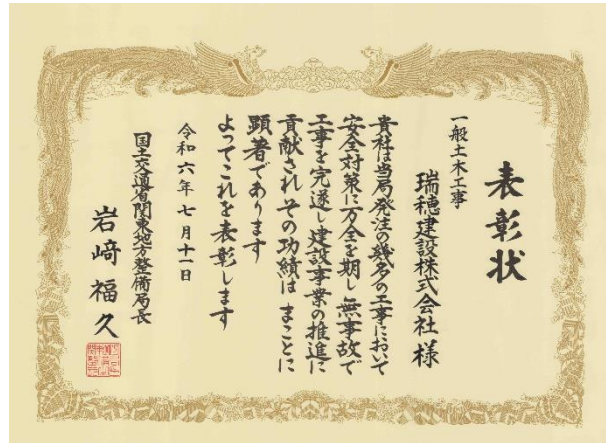 表彰状
一般土木工事
瑞穂建設株式会社様
貴社は当局発注の幾多の工事において
安全対策に万全を期し無事故で
工事を完遂し建設事業の推進に
貢献されその功績は まことに
顕著であります
よってこれを表彰します
令和六年七月十一日
国土交通省関東地方整備局長
岩﨑福久